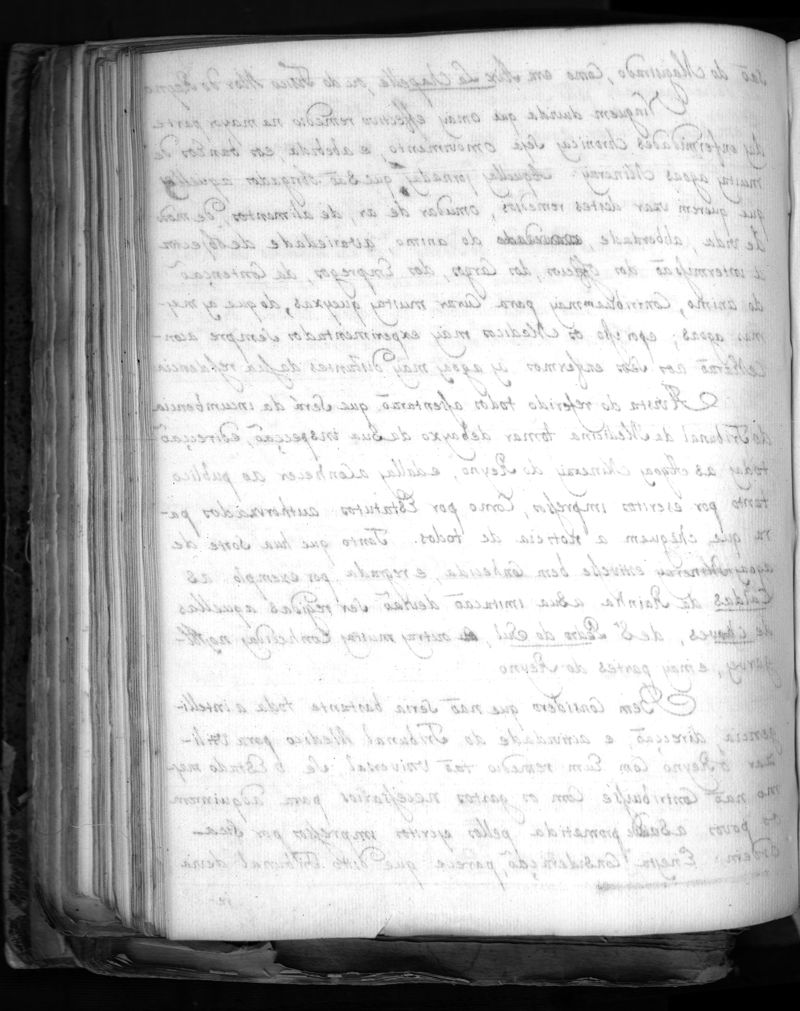 saõ do Magistrado, Como em Aix La Chapelle, ou do Fisico Mór do Reyno
Ninguem duvida que o mayz effectivo remedio na mayor parte
das enfermidades chronicas seja o movimento, e a bebida, e os banhos de
muitas agoas Mineraes. Aquellas jornadas que saõ obrigados aquelles
que querem uzar destes remedios, o mudar de ar, de alimentos, de modo
de vida, a liberdade do animo, a variedade de objectos
a intermissaõ dos officios, dos Cargos, dos Empregos, da Contençaõ
do animo, Contribuem mais para Curar muitas queyxas, do que as mes-
mas agoas; e por isso os Medicos mais experimentados sempre acon-
selharaõ aos seus enfermos as agoas mais distantes da sua residencia
A vista do referido todos assentaraõ, que será da incumbencia
do Tribunal da Medicina tomar debayxo de sua inspecçaõ, e direcçaõ
todas as Agoas Mineraes do Reyno, e dallas a Conhecer ao publico
tanto por escritos impressos, Como por Estatutos authorizados pa-
ra que cheguem a noticia de todos. Tanto que hua sorte de
agoas Mineraes estivesse bem Conhecida, e regrada, por exemplo as
Caldas da Rainha, a Sua imitaçaõ deviaõ ser regidas aquellas
de Chaves, de S. Pedro do Sul, outras muitas Conhecidas no Al-
garve, e mais partes do Reyno
Bem Considero que naõ seria bastante toda a intelli-
gencia, direcçaõ, e actividade do Tribunal Medico para utili-
zar o Reyno Com hum remedio taõ Universal, se o Estado mes-
mo naõ Contribuisse Com os gastos necessarios para adquirirem
os povos a Saude promettida pellos escritos impressos por Sua
Ordem. Nesta Consideraçaõ, parece que o dito Tribunal devia